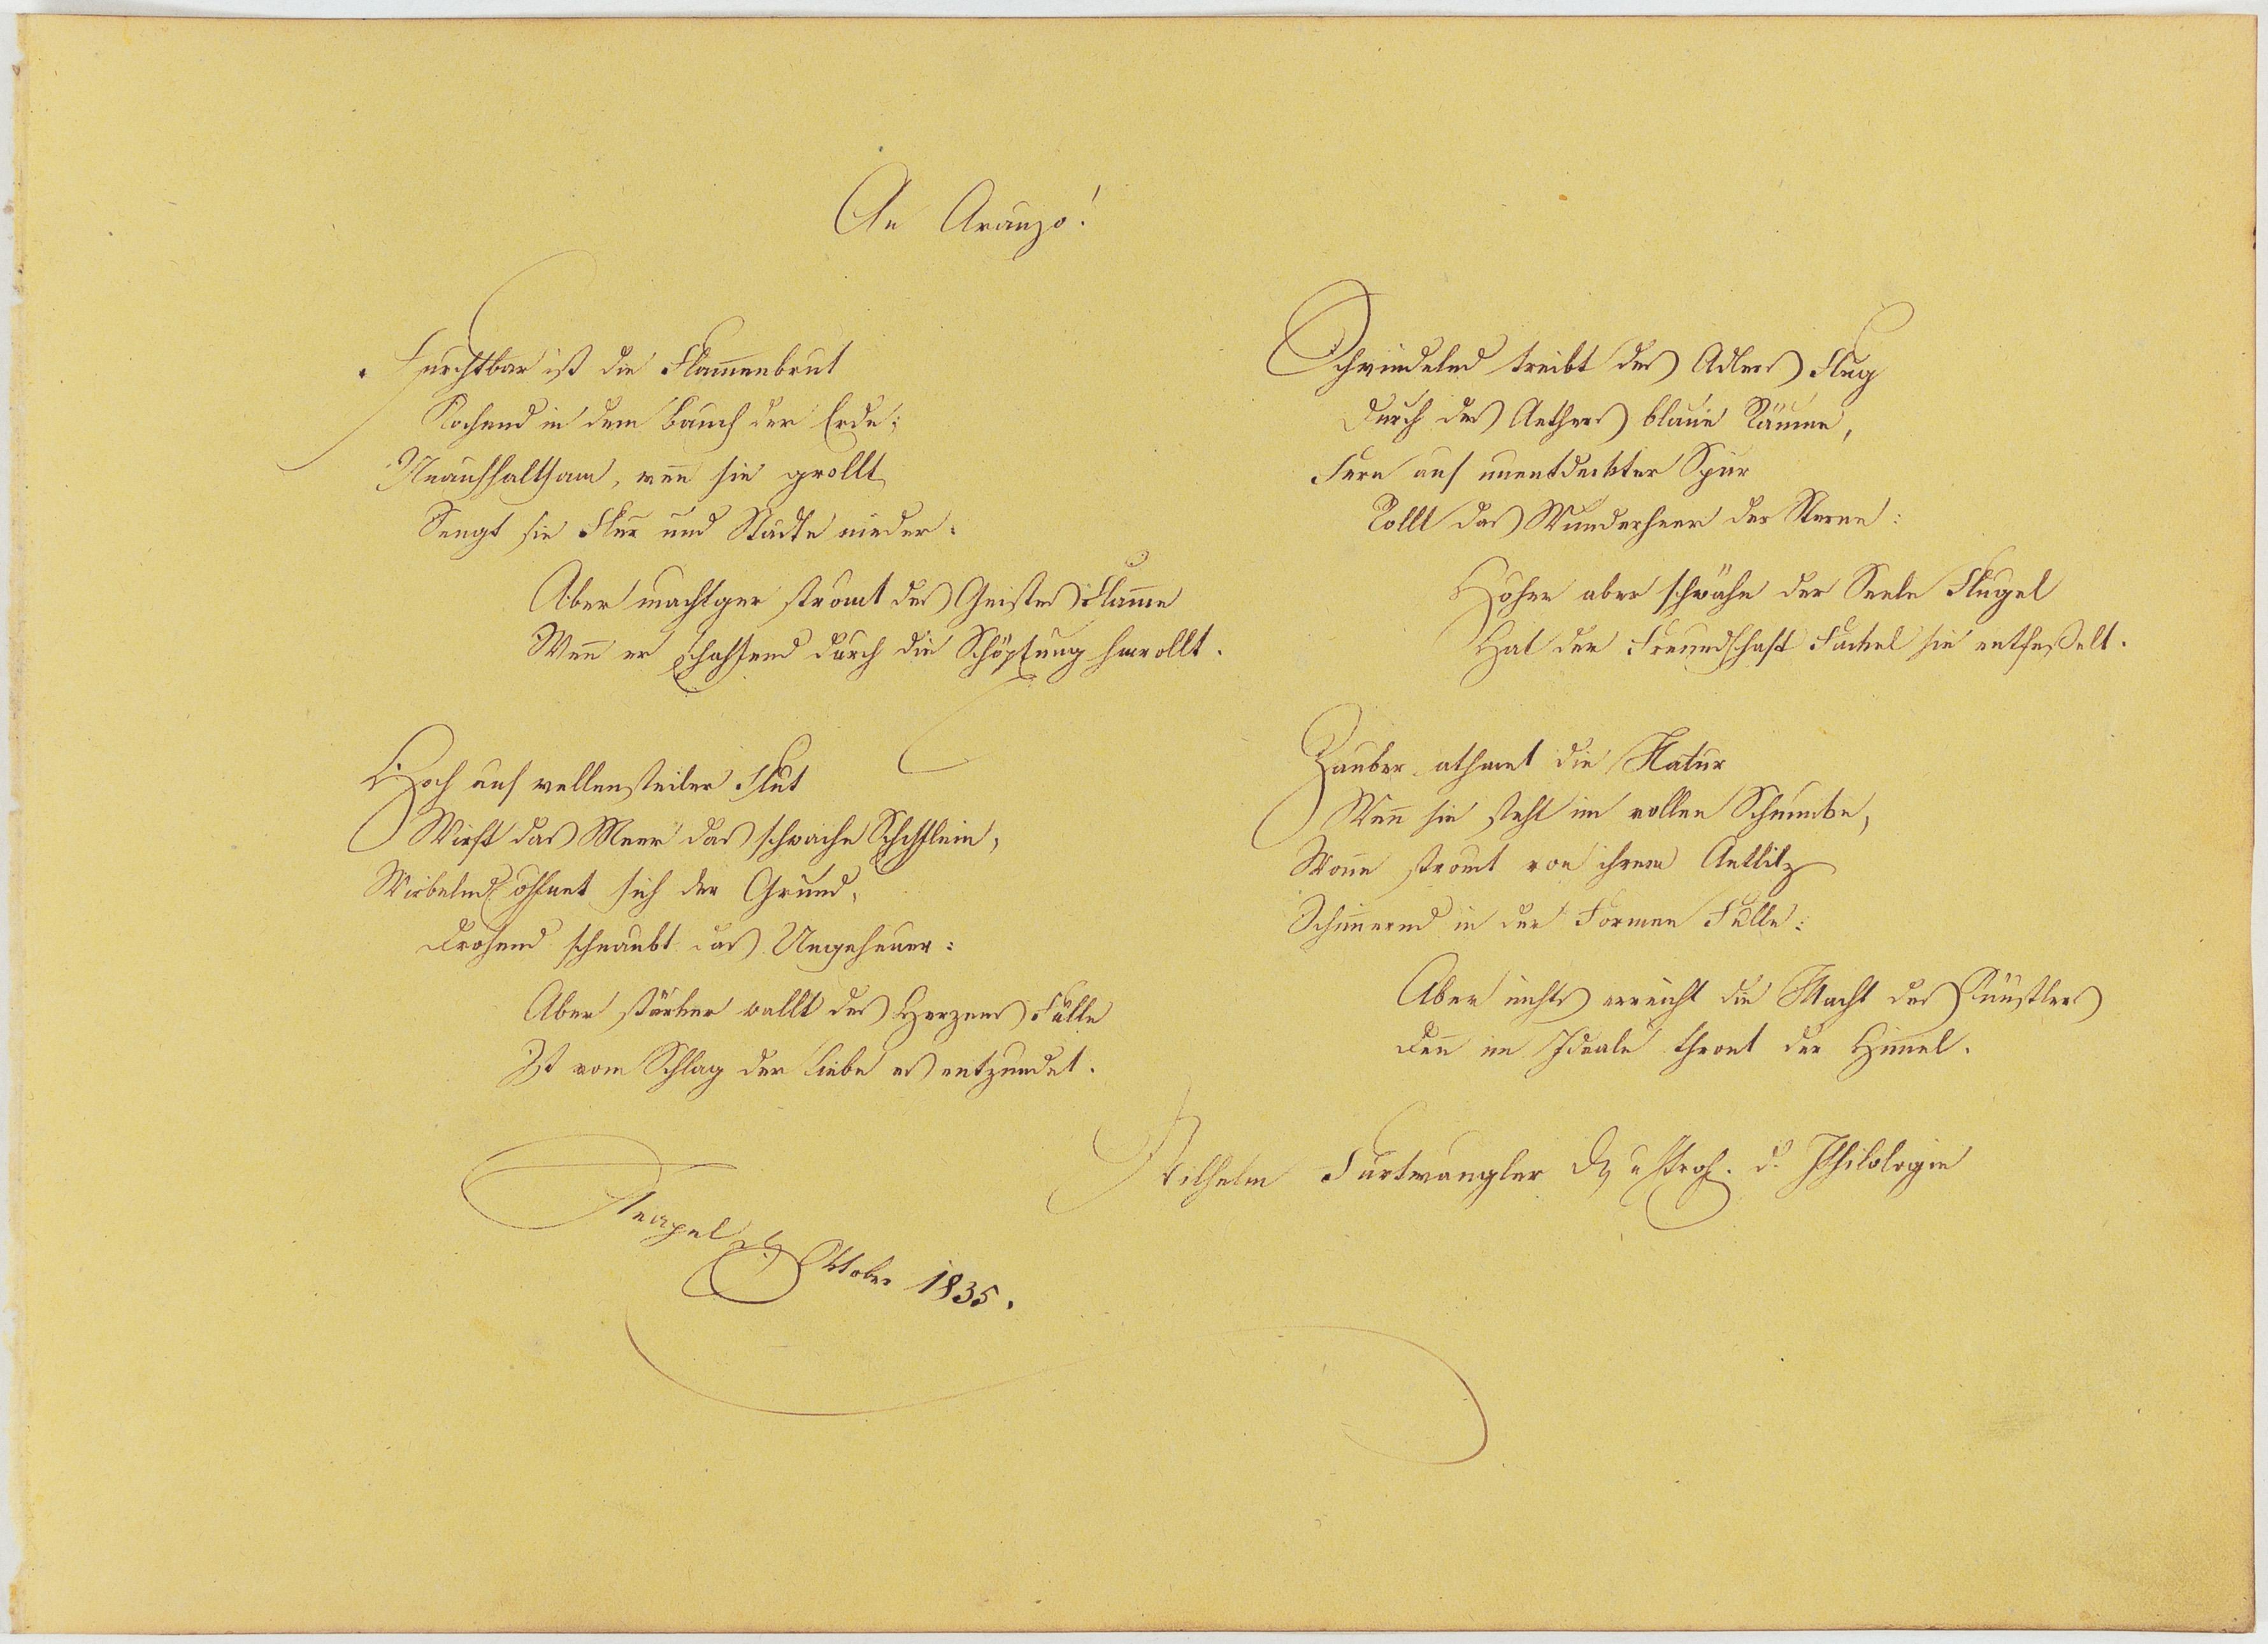 An Aranzo!
Furchtbar ist die Flam̅enbrut
Kochend in dem Bauch der Erde;
Unaufhaltsam, wen̅ sie grollt
Sengt sie Flur und Städte nieder.
Aber machtger stromt des Geistes Flam̅e
Wen̅ er schaffend durch die Schöpfung herrollt.
Hoch auf wellensteiler Flut
Wirft das Meer das schwache Schifflein,
Wirbelnd offnet sich der Grund,
Drohend schnaubt das Ungeheuer:
Aber stärker wallt des Herzens Fülle
Ist vom Schlag der Liebe es entzundet.
Schwindelnd treibt des Adlers Flug
Durch des Aethers blaue Räume,
Fern auf unentdeckter Spur
Rollt das Wunderheer der Sterne:
Hoher aber der Seele Flugel
Hat der Freundschaft Fackel sie entfeßelt.
Zauber athmet die Natur
Wen̅ sie steht im vollen Schmucke,
Won̅e stromt von ihrem Antlitz
Schim̅ernd in der Formen Fülle:
Aber nichts erreicht die Macht des Künstlers
Den̅ im Ideale thront der Him̅el.
Wilhelm Furtwangler Dr u Prof. d. Philologie
Neapel Oktober 1835.